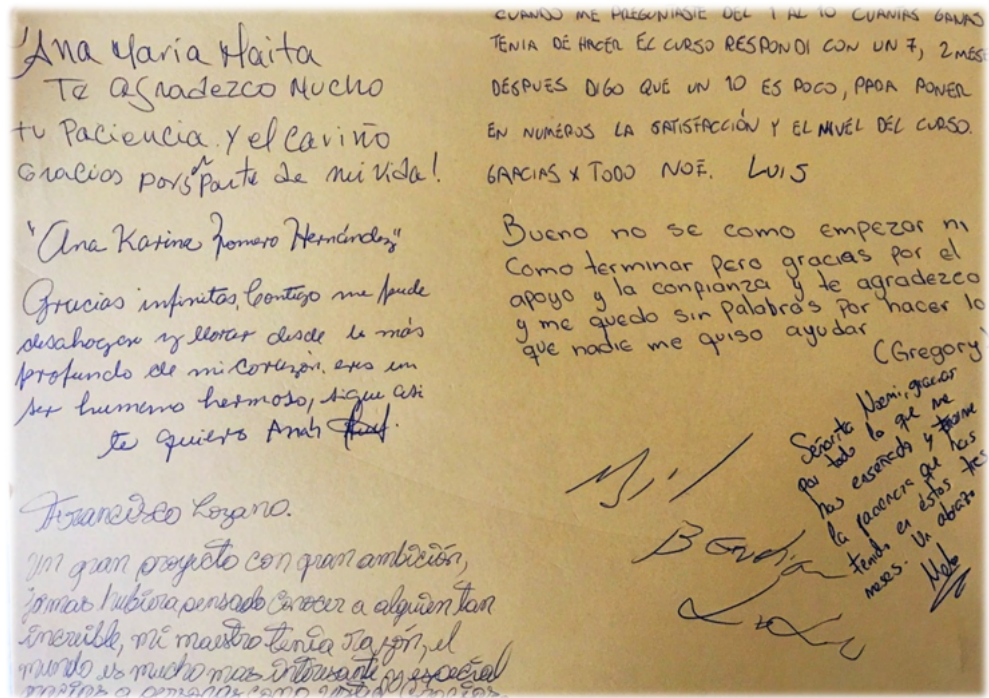 Ana María Maita
Te agradezco Mucho
tu Paciencia y el cariño
Gracias por s Parte de mi vida!
"Ana Karina Romero Hernández"
Gracias infinitas, Contigo me pude
desahogar y llorar desde lo más
profundo de mi corazón. eres un
ser humano hermoso, sigue asi
te quiero Anah
Francisco Lozano.
Un gran proyecto con gran ambición,
jamas hubiera pensado conocer a alguien tan
increible, mi maestro tenia razón, el
mundo es mucho mas interesante y especial
gracias a personas como usted Gracias.
CUANDO ME PREGUNTASTE DEL 1 AL 10 CUANTAS GANAS
TENIA DE HACER EL CURSO RESPONDI CON UN 7, 2 MESE
DESPUES DIGO QUE UN 10 ES POCO, PARA PONER
EN NUMEROS LA SATISFACCIÓN Y EL NIVEL DEL CURSO.
GRACIAS X TODO NOE. LUIS
Bueno no se como empezar ni
Como terminar pero gracias por el
apoyo y la confianza y te agradezco
y me quedo sin Palabras Por hacer lo
que nadie me quiso ayudar
(Gregory)
Señorita Noemi, gracias
por todo lo que me
has enseñado y
la paciencia que has
tenido en éstos tres
meses. Un abrazo
Mil